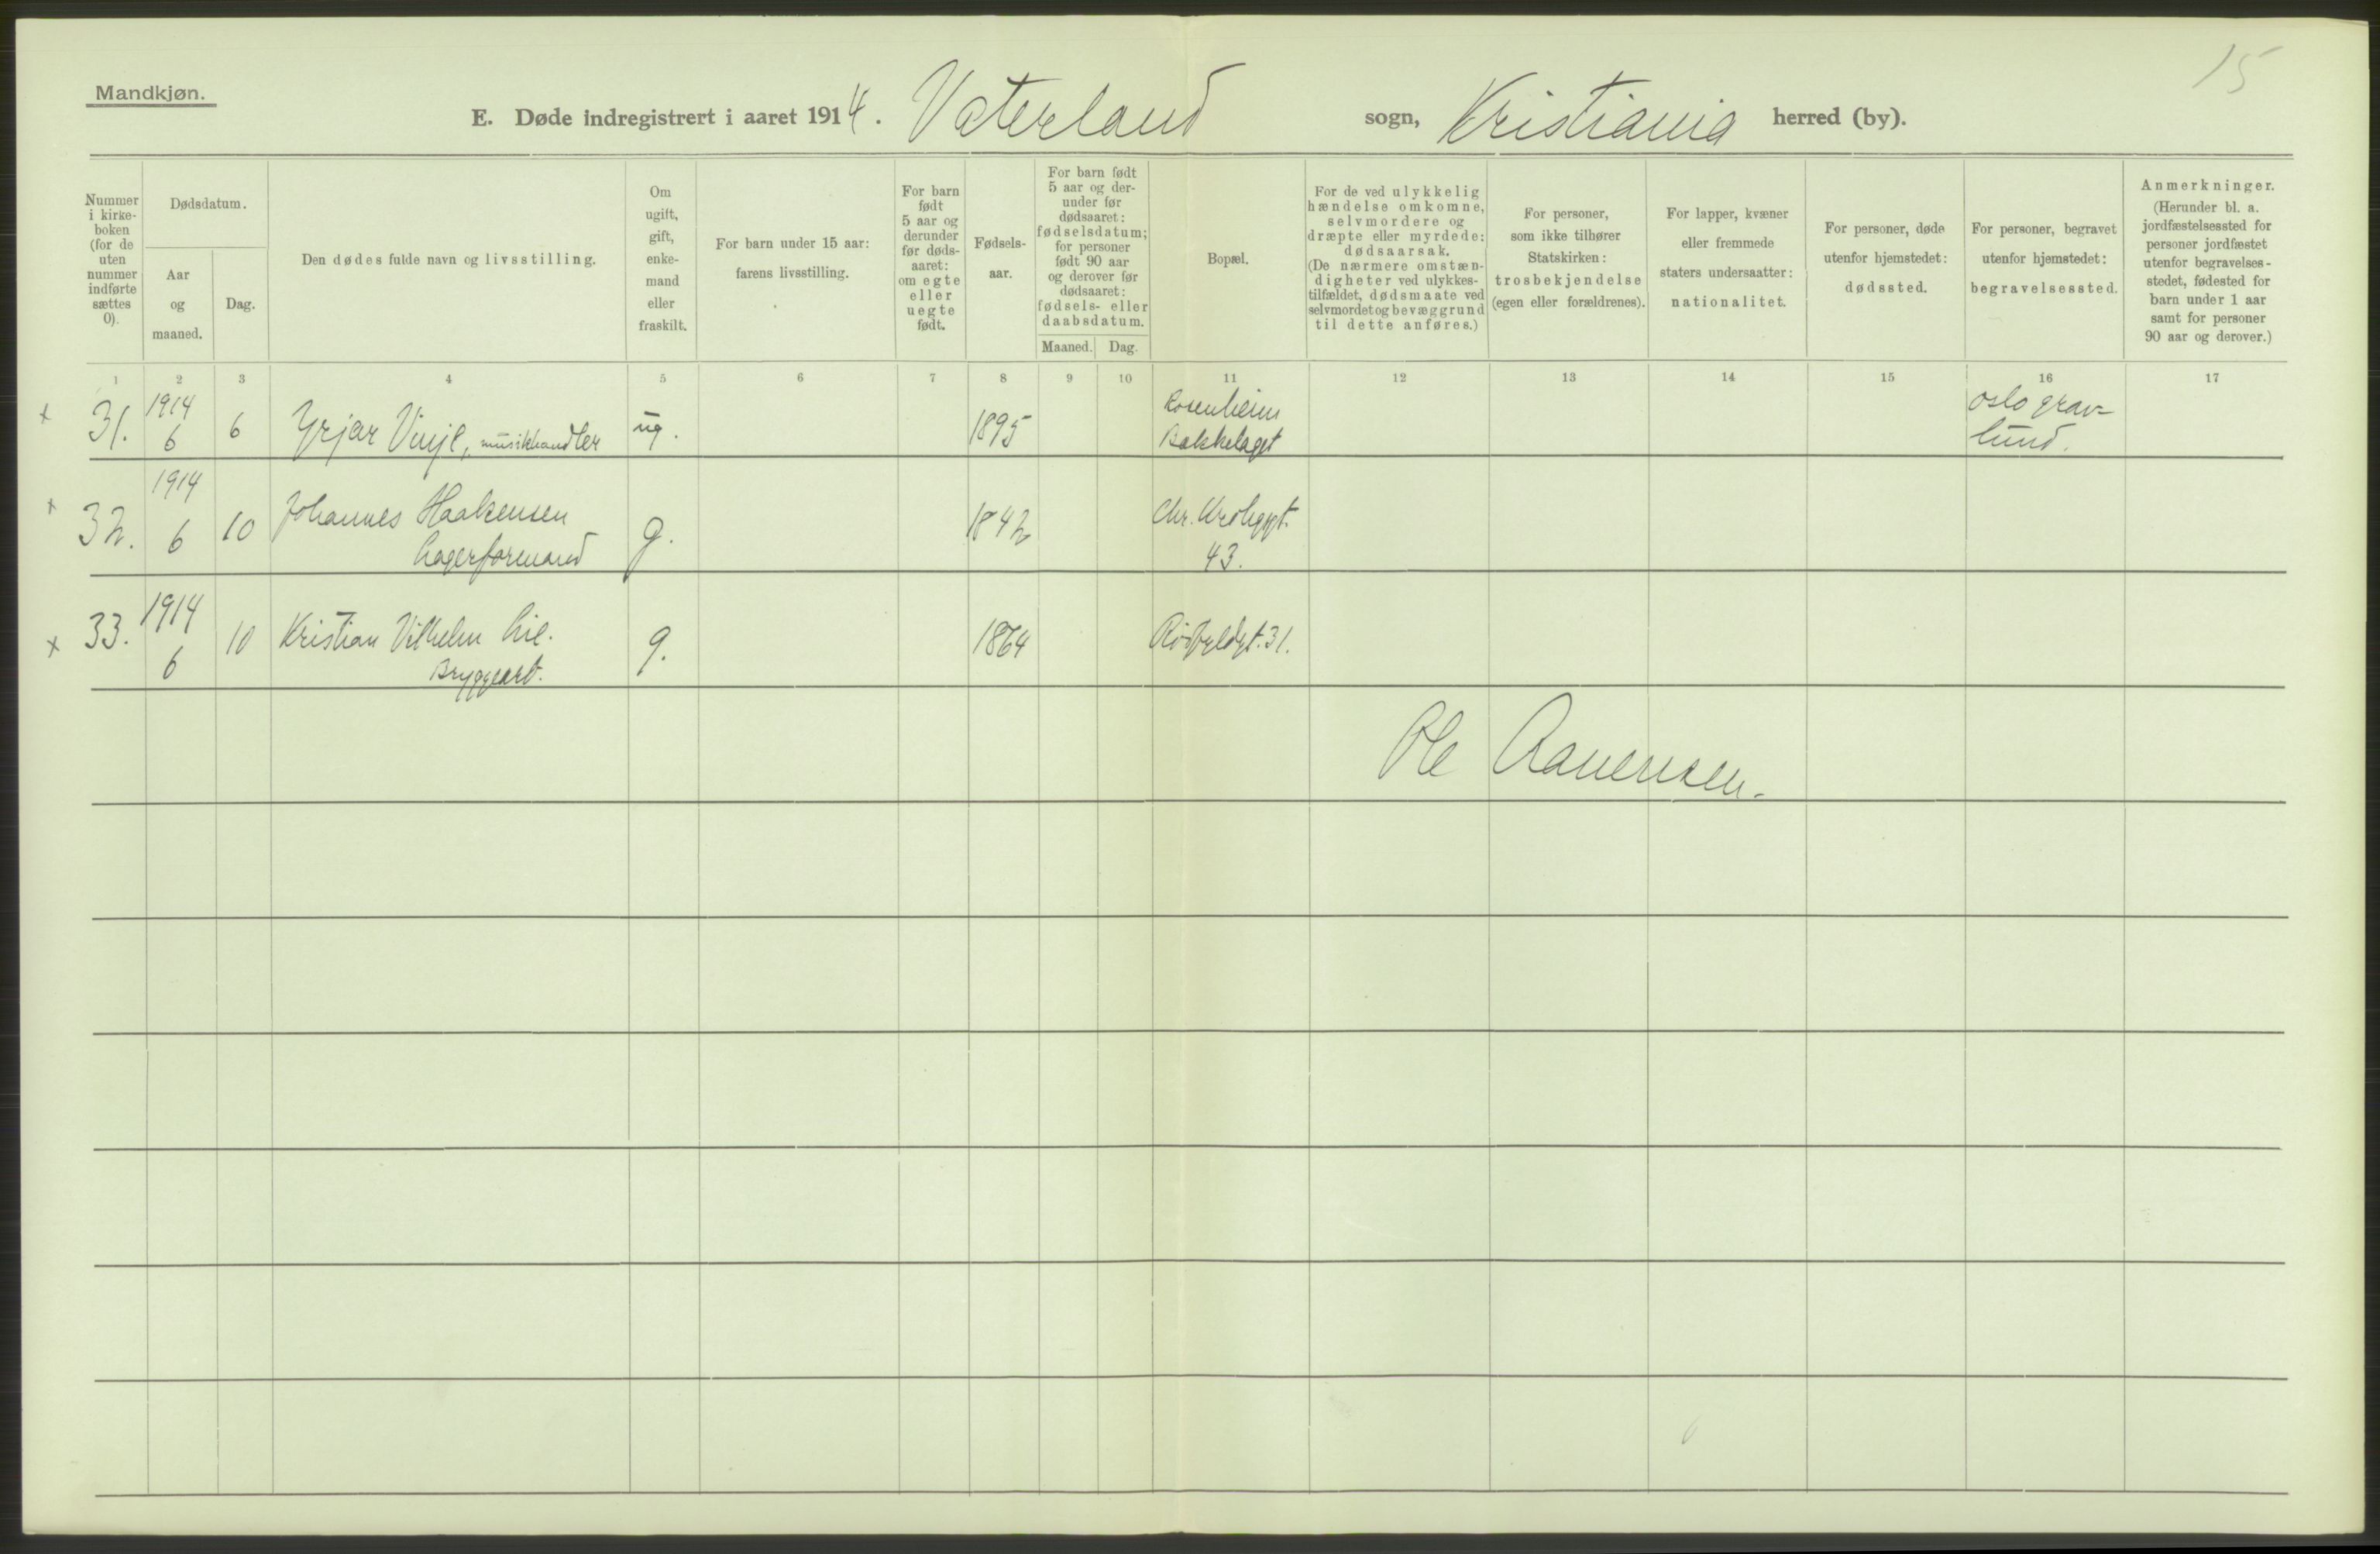 15
Mandkjøn.
E. Døde indregistrert i aaret 1914. Vaterland sogn, Kristiania herred (by).
Nummer
i kirke-
boken
(for de
uten
nummer
indførte
sættes
0).
Dødsdatum.
Aar
og
maaned.
Dag.
Den dødes fulde navn og livsstilling.
Om
ugift,
gift,
enke-
mand
eller
fraskilt.
For barn under 15 aar:
farens livsstilling.
For barn
født
5 aar og
derunder
før døds-
aaret:
om egte
eller
uegte
født.
Fødsels-
aar.
For barn født
5 aar og der-
under før
dødsaaret:
fødselsdatum;
for personer
født 90 aar
og derover før
dødsaaret:
fødsels- eller
daabsdatum.
Maaned. Dag.
Bopæl.
For de ved ulykkelig
hændelse omkomne,
selvmordere og
dræpte eller myrdede:
dødsaarsak.
(De nærmere omstæn-
digheter ved ulykkes-
tilfældet, dødsmaate ved
selvmordet og bevæggrund
til dette anføres.)
For personer,
som ikke tilhører
Statskirken:
trosbekjendelse
(egen eller forældrenes).
For lapper, kvæner
eller fremmede
staters undersaatter:
nationalitet.
For personer, døde
utenfor hjemstedet:
dødssted.
For personer, begravet
utenfor hjemstedet:
begravelsessted.
Anmerkninger.
(Herunder bl. a.
jordfæstelsessted for
personer jordfæstet
utenfor begravelses-
stedet, fødested for
barn under 1 aar
samt for personer
90 aar og derover.)
1 2 3 4 5 6 7 8 9 10 11 12 13 14 15 16 17
x 31. 1914
6 6 Yrjar Vinje, musikhandler ug. 1895 Rosenheim
Bækkelaget Oslo grav-
lund.
x 32. 1914
6 10 Johannes Haakensen
Lagerformand g. 1842 Chr. Krohggt.
43.
x 33. 1914
6 10 Kristian Vilhelm Lie.
Bryggearb. g. 1864 Rødfyldgt. 31.
Ole Aanensen.